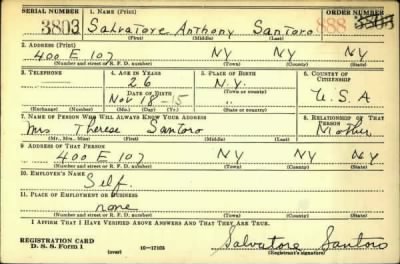 SERIAL NUMBER 1. NAME (Print) ORDER NUMBER
3803 Salvatore Anthony Santoro 888 3803
(First) (Middle) (Last)
2. ADDRESS (Print)
400 E 107 NY NY
(Number and street or R. F. D. number) (Town) (County) (State)
3. TELEPHONE 4. AGE IN YEARS 5. PLACE OF BIRTH 6. COUNTRY OF CITIZENSHIP
26 N.Y.
DATE OF BIRTH (Town or county)
Nov 18-15 " U.S.A
(Exchange) (Number) (Mo.) (Day) (Yr.) (State or country)
7. NAME OF PERSON WHO WILL ALWAYS KNOW YOUR ADDRESS 8. RELATIONSHIP OF THAT PERSON
Mrs Therese Santoro Mother
(Mr., Mrs., Miss) (First) (Middle) (Last)
9. ADDRESS OF THAT PERSON
400 E 107 NY NY
(Number and street or R. F. D. number) (Town) (County) (State)
10. EMPLOYER'S NAME
Self.
11. PLACE OF EMPLOYMENT OR BUSINESS
none
(Number and street or R. F. D. number) (Town) (County) (State)
I AFFIRM THAT I HAVE VERIFIED ABOVE ANSWERS AND THAT THEY ARE TRUE.
REGISTRATION CARD
D. S. S. Form 1 (over) 16—17105 Salvatore Santoro
(Registrant's signature)